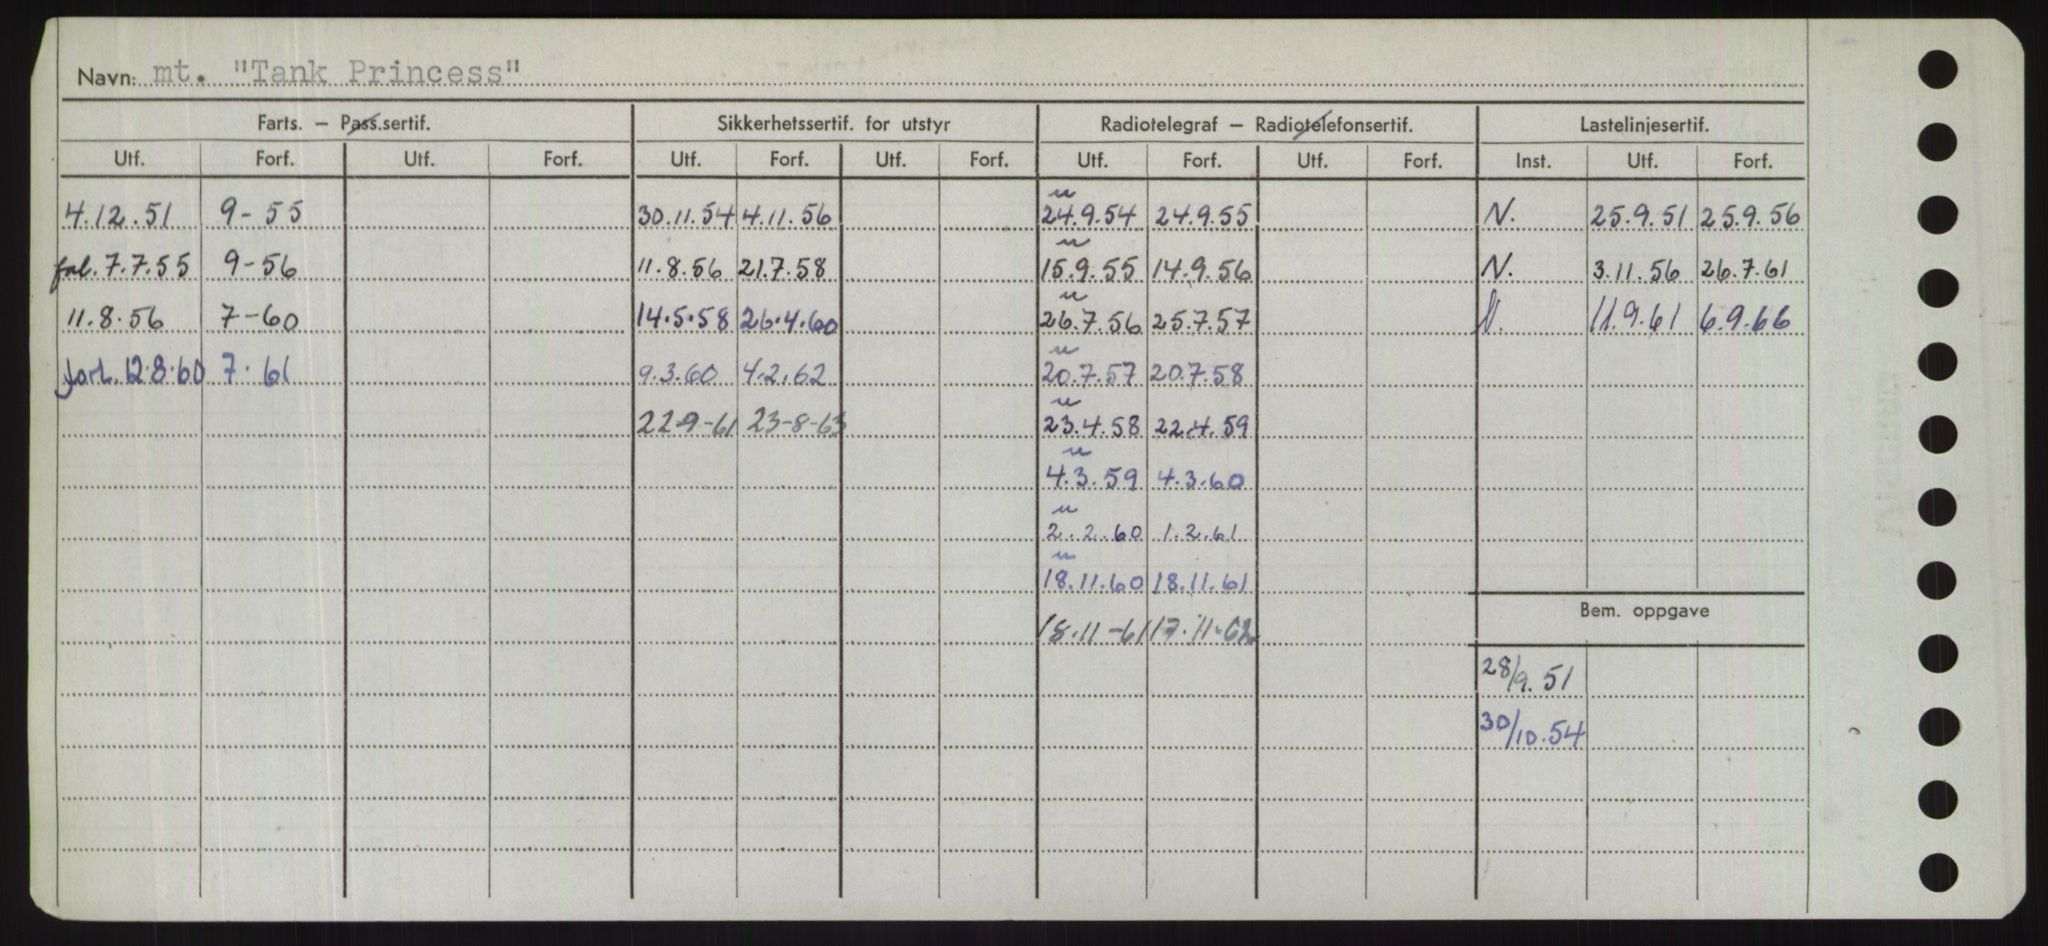 Navn: mt. "Tank Princess"
Farts. — Pass.sertif. Sikkerhetssertif. for utstyr Radiotelegraf — Radiotelefonsertif. Lastelinjesertif.
Utf. Forf. Utf. Forf. Utf. Forf. Utf. Forf. Utf. Forf. Utf. Forf. Inst. Utf. Forf.
4.12.51 9-55 30.11.54 4.11.56 24.9.54 24.9.55 N. 25.9.51 25.9.56
7.7.55 9-56 11.8.56 21.7.58 15.9.55 14.9.56 N. 3.11.56 26.7.61
11.8.56 7-60 14.5.58 26.4.60 26.7.56 25.7.57 N. 11.9.61 6.9.66
forl. 12.8.60 7.61 9.3.60 4.2.62 20.7.57 20.7.58
22-9-61 23-8-63 23.4.58 22.4.59
4.3.59 4.3.60
2.2.60 1.2.61
18.11.60 18.11.61
Bem. oppgave
18.11-61 17.11.62
28/9.51
30/10.54